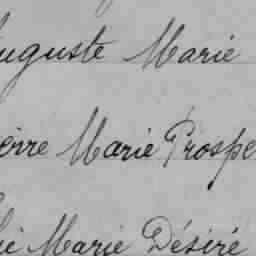 uguste Marie
ierre Marie Prospe
ie Marie Désiré